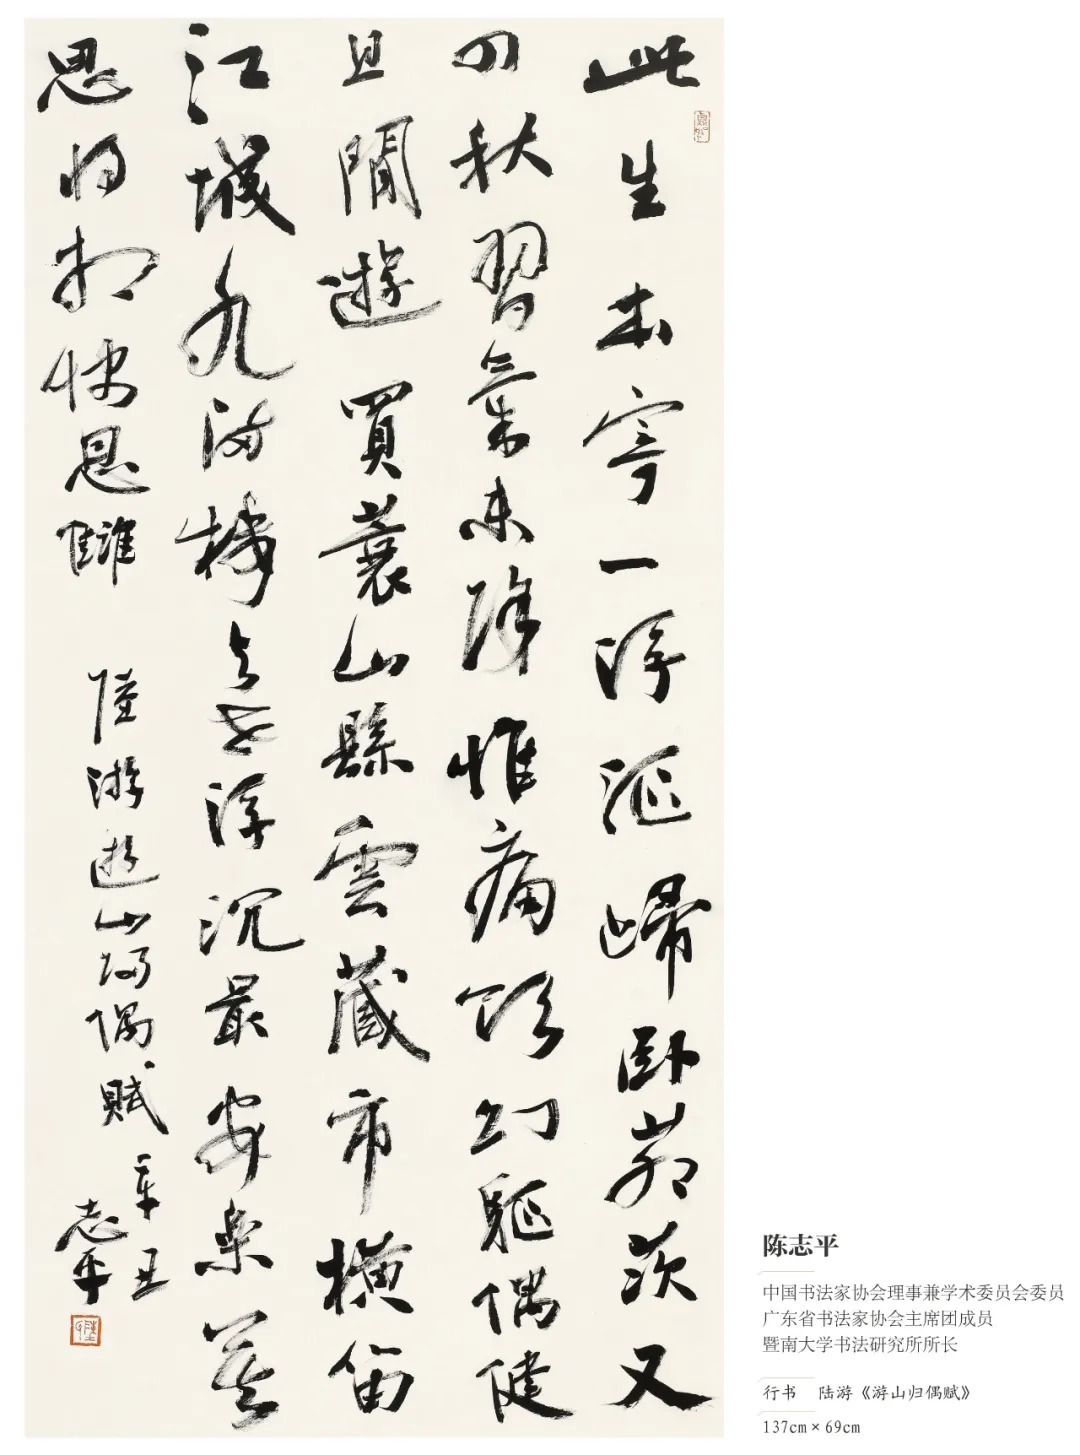 此生本寄一浮漚歸卧茆茨又
四秋習氣未除惟痛飲幻軀偶健
且閒遊買蓑山縣雲藏市橫笛
江城月滿樓與世浮沉最安樂莫
思將相快恩讎 陸游遊山歸偶賦 辛丑
志平
陈志平
中国书法家协会理事兼学术委员会委员
广东省书法家协会主席团成员
暨南大学书法研究所所长
行书 陆游《游山归偶赋》
137cm×69cm